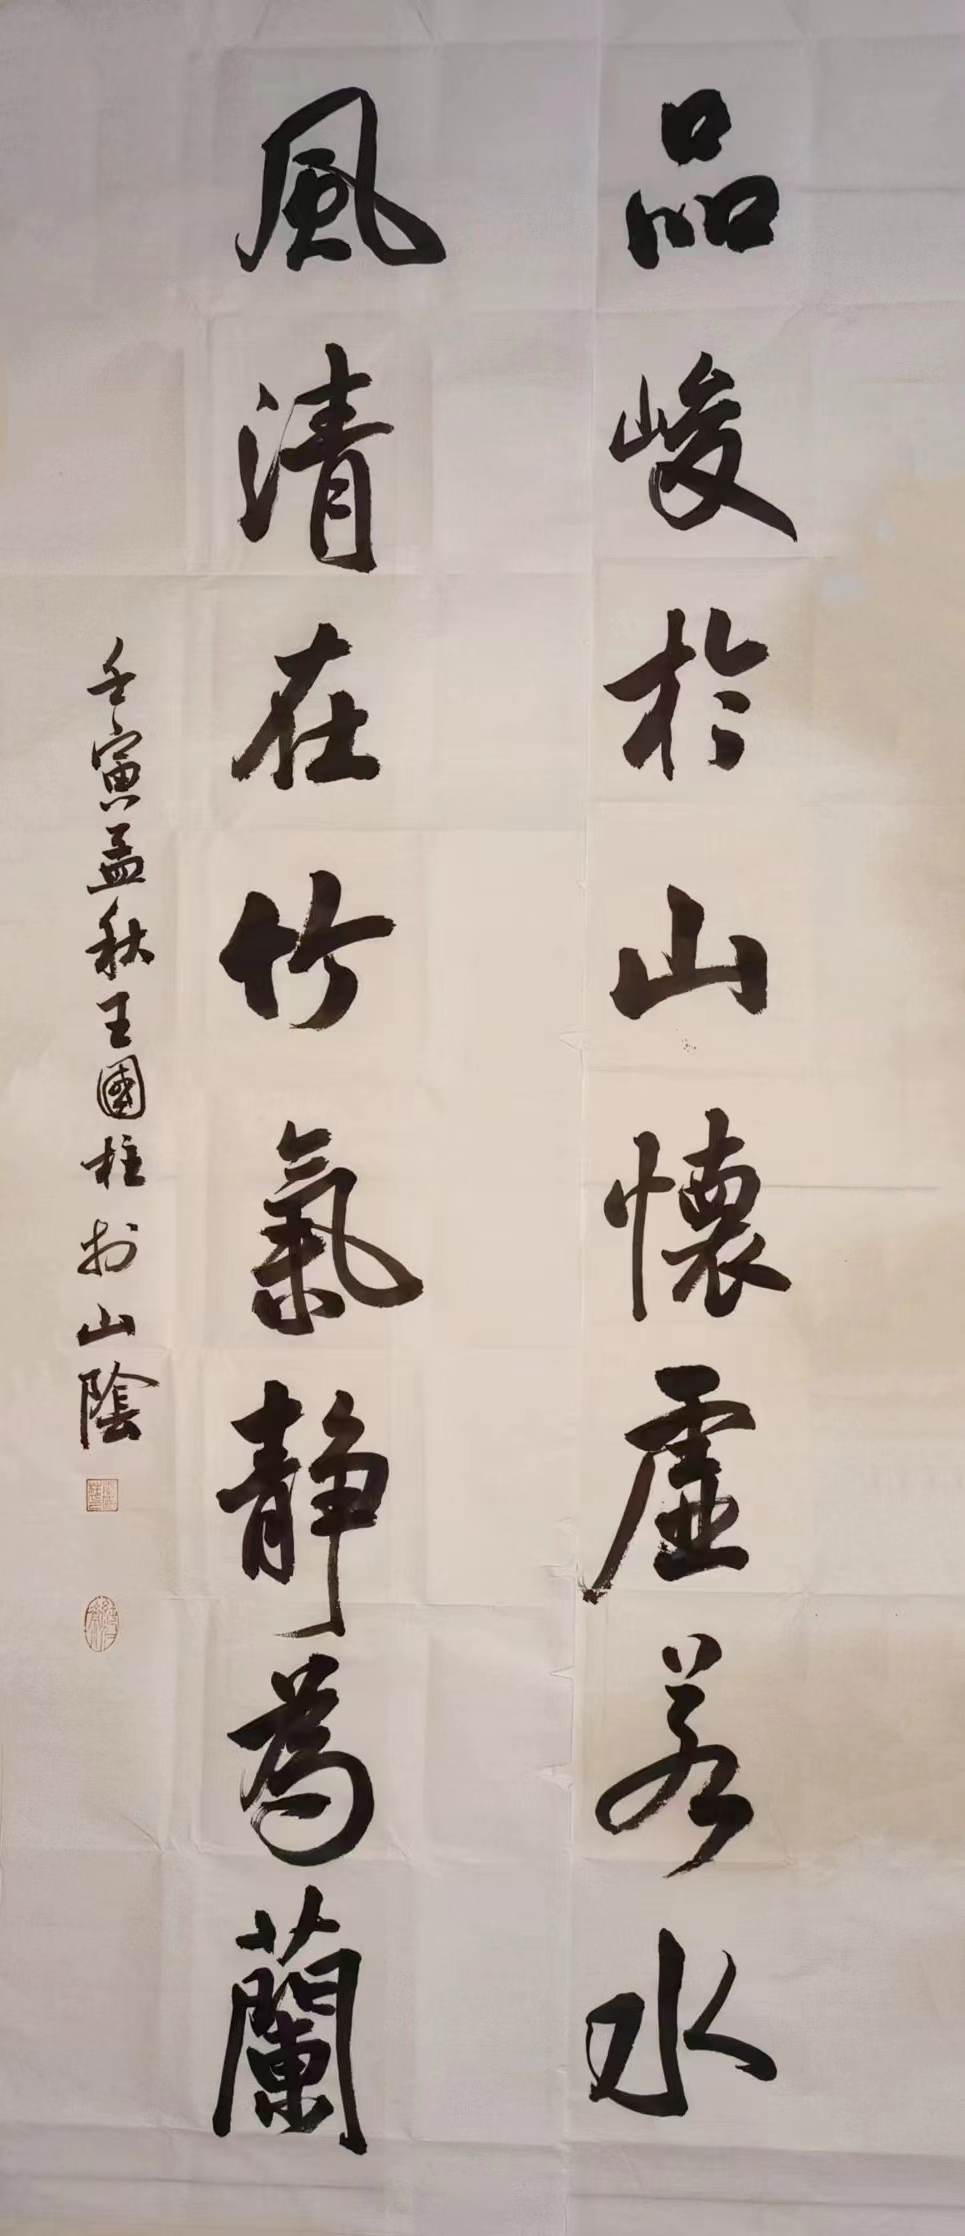 品峻於山懷虛若水
風清在竹氣靜為蘭
壬寅孟秋王國柱於山陰